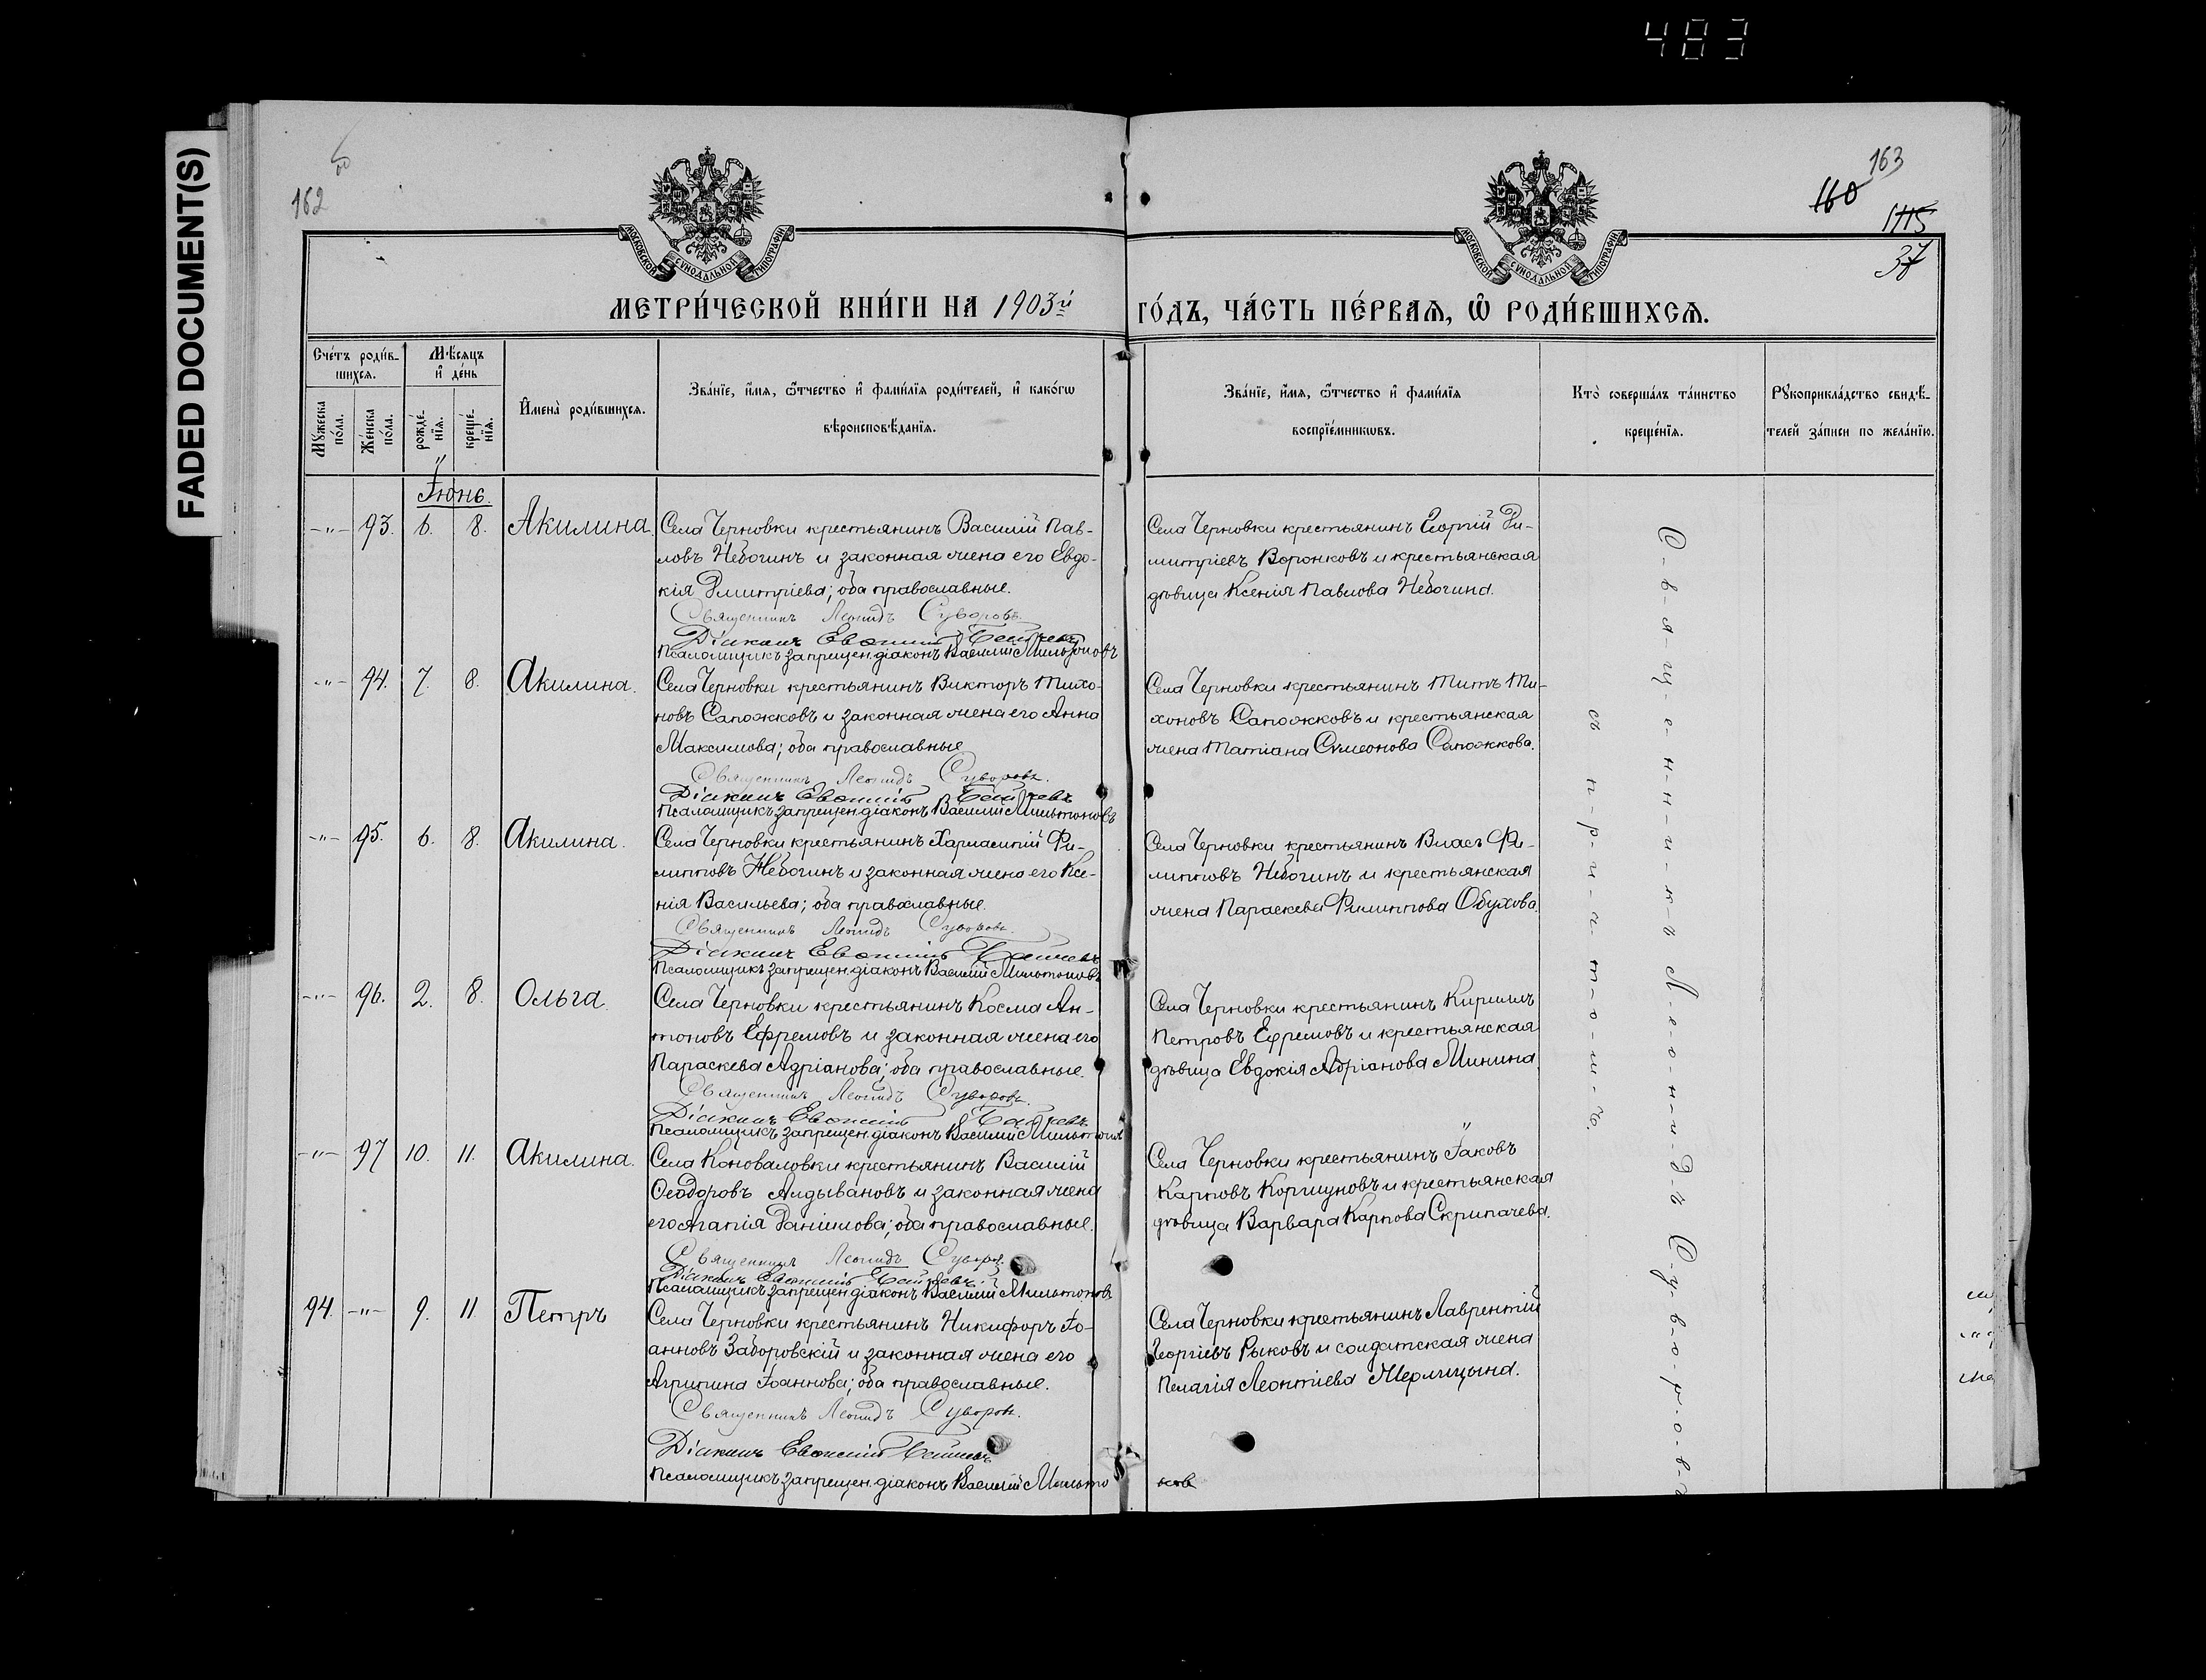 483
FADED DOCUMENT(S)
162
163
160
1115
37
МОСКОВСКОЙ СУНОДАЛЬНОЙ ТИПОГРАФІИ
МОСКОВСКОЙ СУНОДАЛЬНОЙ ТИПОГРАФІИ
МЕТРИ́ЧЕСКОЙ КНИ́ГИ НА 1903й
ГО́ДЪ, ЧА́СТЬ ПЕ́РВАѦ, Ѡ҆ РОДИ́ВШИХСѦ.
Сче́тъ роди́в-
шихсѧ.
Мѣ́сяцъ
и҆ де́нь
Мꙋ́жеска
по́ла.
Же́нска
по́ла.
рожде́-
нїѧ.
креще́-
нїѧ.
И҆мена̀ роди́вшихсѧ.
Зва́нїе, и҆́мѧ, ѻ҆́тчество и҆ фами́лїѧ роди́телей, и҆ како́гѡ
вѣроисповѣ́данїѧ.
Зва́нїе, и҆́мѧ, ѻ҆́тчество и҆ фами́лїѧ
воспрїе́мникѡвъ.
Кто̀ соверша́лъ та́инство
креще́нїѧ.
Рꙋкоприкла́дство свидѣ́-
телей за́писи по жела́нїю.
Іюнь.
-"- 93. 6. 8. Акилина.
Села Черновки крестьянинъ Василій Пав-
ловъ Небогинъ и законная жена его Евдо-
кія Дмитріева; оба православные.
Священникъ Леонидъ Суворовъ.
Діаконъ Евѳимій
Псаломщикъ запрещен. діаконъ Василій Мильтоновъ
Села Черновки крестьянинъ Георгій Ди-
митріевъ Воронковъ и крестьянская
дѣвица Ксенія Павлова Небогина.
-"- 94. 7. 8. Акилина.
Села Черновки крестьянинъ Викторъ Тихо-
новъ Сапожковъ и законная жена его Анна
Максимова; оба православные
Священникъ Леонидъ Суворовъ.
Діаконъ Евѳимій
Псаломщикъ запрещен. діаконъ Василій Мильтоновъ
Села Черновки крестьянинъ Титъ Ти-
хоновъ Сапожковъ и крестьянская
жена Татіана Сѵмеонова Сапожкова.
-"- 95. 6. 8. Акилина.
Села Черновки крестьянинъ Харлампій Фи-
липповъ Небогинъ и законная жена его Ксе-
нія Васильева; оба православные.
Священникъ Леонидъ Суворовъ.
Діаконъ Евѳимій
Псаломщикъ запрещен. діаконъ Василій Мильтоновъ
Села Черновки крестьянинъ Власъ Фи-
липповъ Небогинъ и крестьянская
жена Параскева Филиппова Обухова.
-"- 96. 2. 8. Ольга.
Села Черновки крестьянинъ Косма Ан-
тоновъ Ефремовъ и законная жена его
Параскева Адріанова; оба православные.
Священникъ Леонидъ Суворовъ.
Діаконъ Евѳимій
Псаломщикъ запрещен. діаконъ Василій Мильтоновъ
Села Черновки крестьянинъ Кириллъ
Петровъ Ефремовъ и крестьянская
дѣвица Евдокія Адріанова Минина.
-"- 97 10. 11. Акилина.
Села Коноваловки крестьянинъ Василій
Ѳеодоровъ Алдывановъ и законная жена
его Агапія Даніилова; оба православные.
Священникъ Леонидъ Суворовъ.
Діаконъ Евѳимій
Псаломщикъ запрещен. діаконъ Василій Мильтоновъ
Села Черновки крестьянинъ Іаковъ
Карповъ Коршуновъ и крестьянская
дѣвица Варвара Карпова Скрипачева.
94. -"- 9. 11. Петръ
Села Черновки крестьянинъ Никифоръ Іо-
анновъ Заборовскій и законная жена его
Агрипина Іоаннова; оба православные.
Священникъ Леонидъ Суворовъ.
Діаконъ Евѳимій
Псаломщикъ запрещен. діаконъ Василій Мильто
новъ
Села Черновки крестьянинъ Лаврентій
Георгіевъ Рыковъ и солдатская жена
Пелагія Леонтіева Мерлицына.
С-в-я-щ-е-н-н-и-к-ъ Л-е-о-н-и-д-ъ С-у-в-о-р-о-в-ъ
съ п-р-и-ч-т-о-м-ъ.